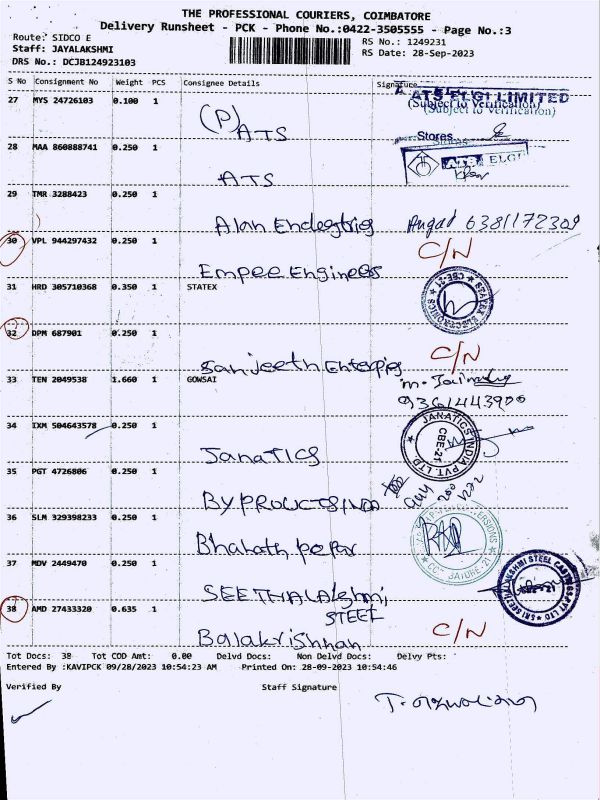 THE PROFESSIONAL COURIERS, COIMBATORE
Delivery Runsheet - PCK - Phone No.:0422-3505555 - Page No.:3
Route: SIDCO E
Staff: JAYALAKSHMI
DRS No.: DCJB124923103
RS No.: 1249231
RS Date: 28-Sep-2023
S No Consignment No Weight PCS Consignee Details Signature
27 MYS 24726103 0.100 1 (P) ATS
ATS ELGI LIMITED
(Subject to Verification)
(Subject to Verification)
Stores
28 MAA 860888741 0.250 1 ATS
ATS ELGI
29 TMR 3288423 0.250 1 Alan Endegtrig Angad 6381172309
30 VPL 944297432 0.250 1 Empee Engineers C/N
31 HRD 305710368 0.350 1 STATEX
STATEX ELECTRONICS CBE-21
32 DPM 687901 0.250 1 Sanjeeth Enterprig C/N
33 TEN 2049538 1.660 1 GOWSAI
34 IXM 504643578 0.250 1 Janatics
JANATICS INDIA PVT. LTD. CBE-21
35 PGT 4726806 0.250 1
36 SLM 329398233 0.250 1 Bharath
37 MDV 2449470 0.250 1 SEETHALAkshmi STEEL
SRI SEETHALAKSHMI STEEL CASTINGS PVT LTD
38 AMD 27433320 0.635 1 Balakrishnan C/N
Tot Docs: 38 Tot COD Amt: 0.00 Delvd Docs: Non Delvd Docs: Delvy Pts:
Entered By :KAVIPCK 09/28/2023 10:54:23 AM Printed On: 28-09-2023 10:54:46
Verified By Staff Signature